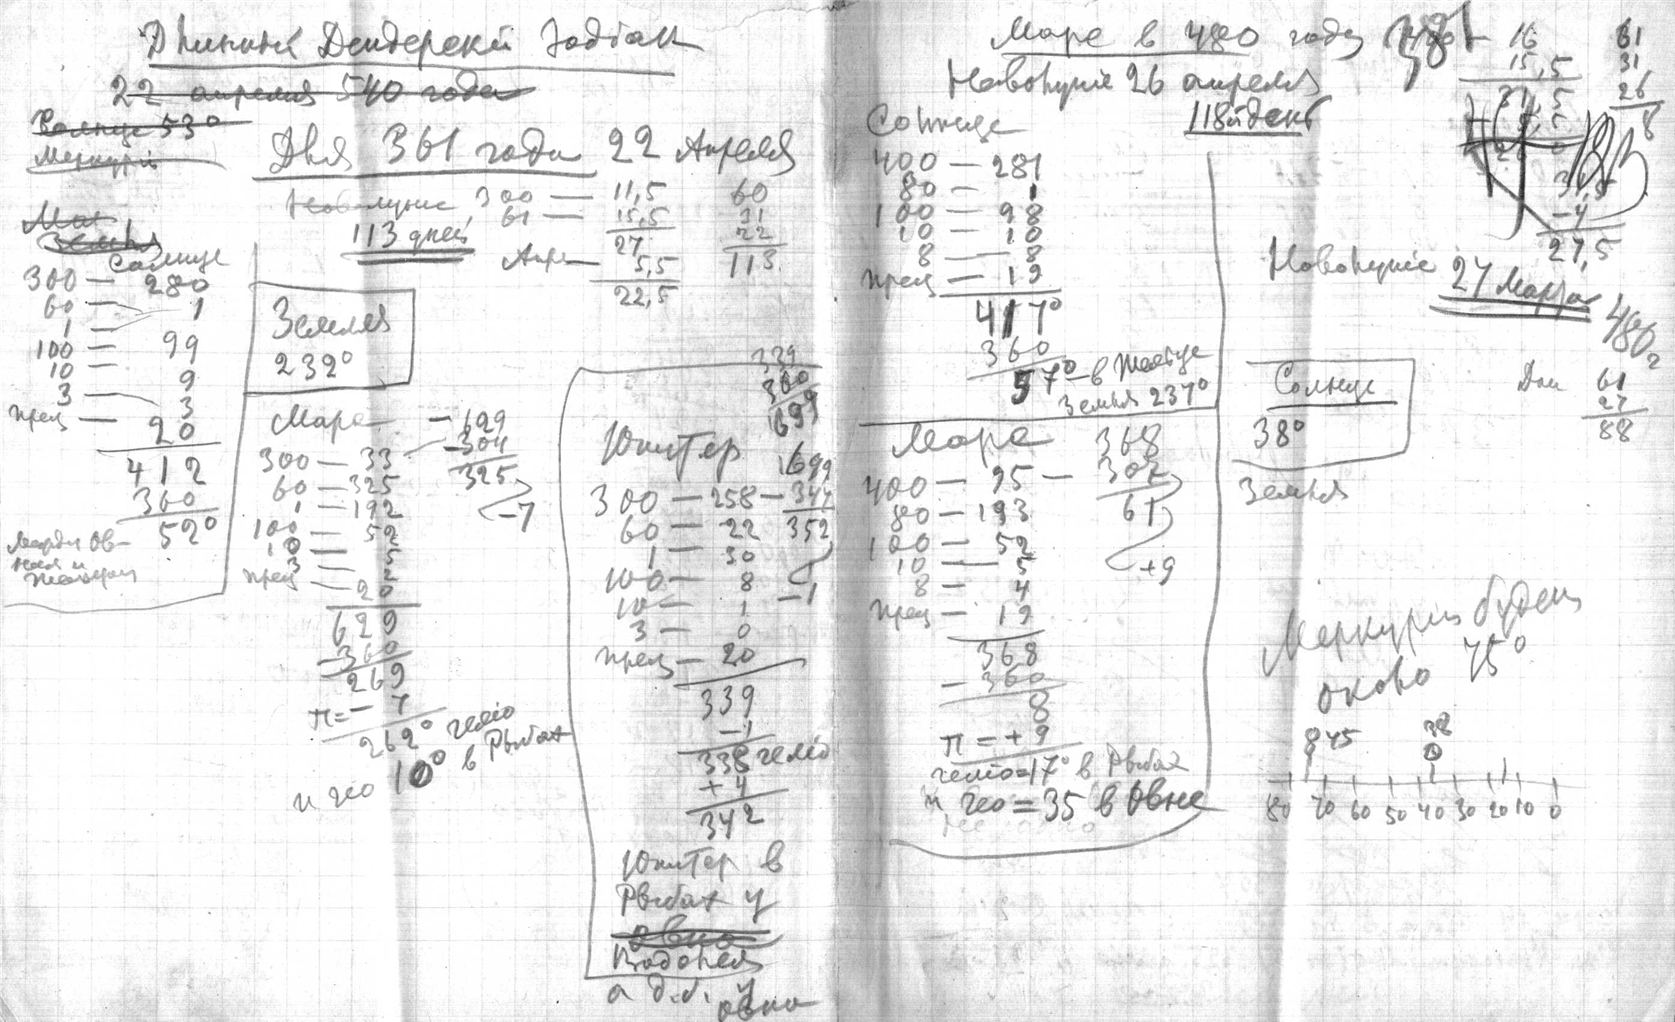 Длинный Дендерский Зодіак
22 апреля 540 года
Солнце 53°
Меркурій
Для 361 года 22 Апреля
Новолуніе 300 — 11,5 60
61 — 15,5 31
27 22
113 дней
Апр — 5,5 113
22,5
Земля
Солнце
300 — 280
60 — 1
1 —
100 — 99
10 — 9
3 — 3
прец — 20
412
360
52°
Земля
232°
Марс
300 — 33
60 — 325
1 — 192
100 — 52
10 — 5
3 — 2
прец — 20
629
- 360
269
π = - 7
262° геліо
и гео 10° в Рыбах
- 629
- 304
325
-7
339
360
699
Юпитер
300 — 258 — 347
60 — 22 352
1 — 30
100 — 8 -1
10 — 1
3 — 0
прец — 20
339
-1
338 геліо
+ 4
342
Юпитер в
Рыбах у
овна
Водолея
а д.б. у
овна
Марс в 480 году
Новолуніе 26 апреля
118й день
Солнце
400 — 281
80 — 1
100 — 98
10 — 10
8 — 8
прец — 19
417°
360
57° — в Тельце
Земля 237°
Марс
400 — 95 —
80 — 193
100 — 52
10 — 5
8 — 4
прец — 19
368
- 360
8
π = + 9
геліо = 17° в Рыбах
и гео = 35 в Овне
368
307
61
+9
16
15,5
31,5
61
31
26
-4
27,5
Новолуніе
27 Марта
480 г
Солнце
38°
Земля
Дни 61
27
88
Меркурій будет
около 75°
75 38
80 70 60 50 40 30 20 10 0